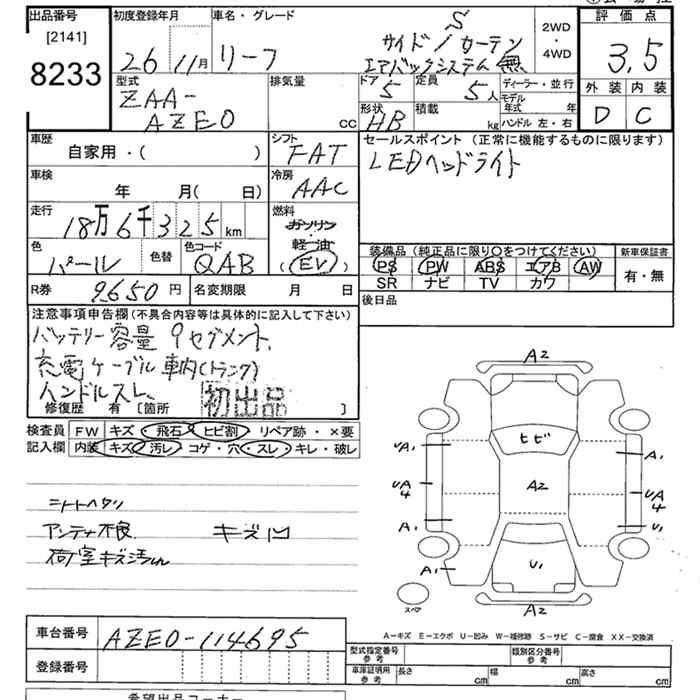 出品番号
[2141]
8233
初度登録年月
26 11月
車名・グレード
リーフ
S
サイド/カーテン
エアバックシステム無
2WD
・
4WD
評価点
3.5
外装 内装
D C
型式
ZAA-
AZE0
排気量
CC
ドア
5
定員
5人
ディーラー・並行
形状
HB
積載
kg
モデル年式 年
ハンドル 左・右
車歴
自家用・( )
シフト
FAT
セールスポイント(正常に機能するものに限ります)
LEDヘッドライト
車検
年 月( 日)
冷房
AAC
走行
18万6千325km
燃料
ガソリン
・
軽油
(EV)
色
パール
色替
色コード
QAB
装備品(純品に限り○をつけてください)
PS PW ABS エアB AW
SR ナビ TV カワ
新車保証書
有・無
R券
9650円
名変期限 月 日
後日品
注意事項申告欄(不具合内容等は具体的に記入して下さい)
バッテリー容量9セグメント、
充電ケーブル車内(トランク)
ハンドルスレ、
初出品
修復歴 有〔箇所 〕
検査員 FW キズ・飛石・ヒビ割・リペア跡・×要
記入欄 内装 キズ・汚レ・コゲ・穴・スレ・キレ・破レ
シートヘタリ
アンテナ不良 キズ凹
荷室キズ汚れ
A2
ヒビ
UA1
A1
UA4
A2
UA4
A1
U1
A1
U1
スペア
A2
A-キズ E-エクボ U-凹み W-補修跡 S-サビ C-腐食 XX-交換済
車台番号
AZE0-114695
登録番号
型式指定番号
参考
類別区分番号
参考
車庫証明用
参考
長さ cm
幅 cm
高さ cm
希望出品コーナー